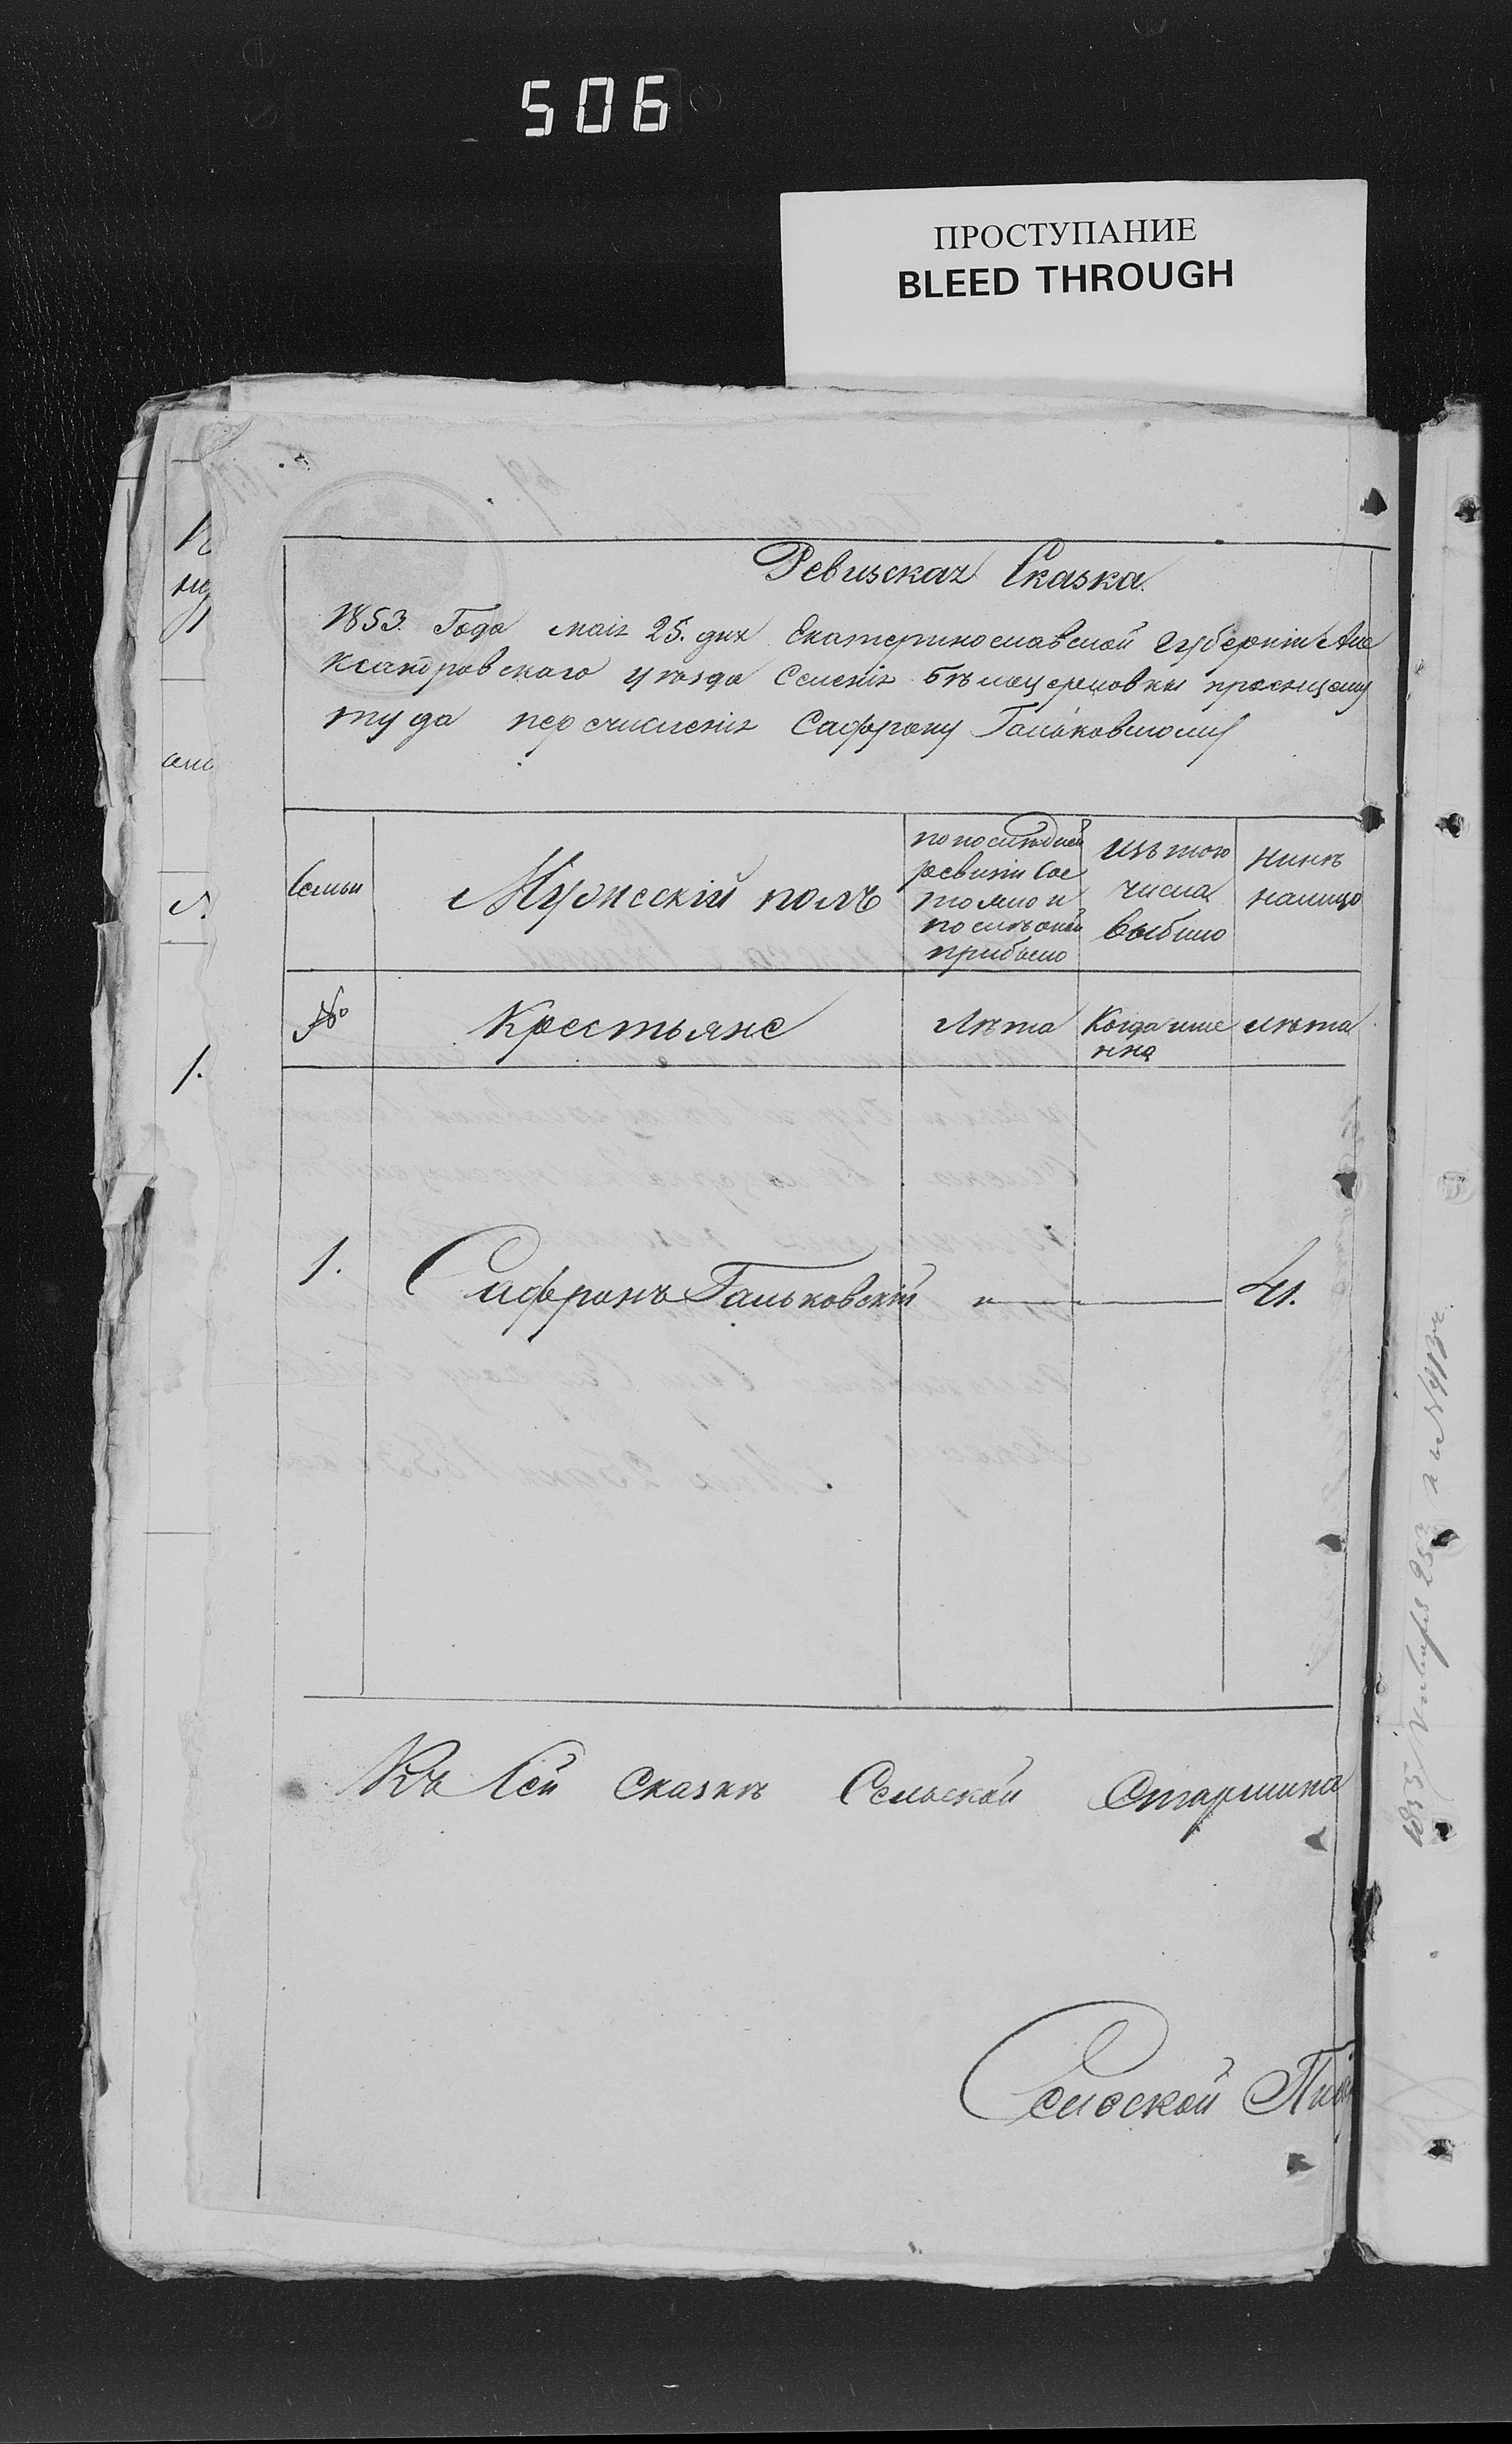 506
ПРОСТУПАНИЕ
BLEED THROUGH
Ревизская Сказка.
1853. Года маія 25. дня Екатеринославской Губерніи Але
ксандровскаго уѣзда Селенія Бѣлоцерковки просящему
туда перечисленія Сафрону Гальковскому
Семьи
Мужескій полъ
по послѣдней
ревизіи Сос
тояло и
послѣ оной
прибыло
Изъ того
числа
выбыло
Нынѣ
налицо
№
Крестьяне
Лѣта
Когда име
нно
Лѣта
1.
Сафронъ Гальковскій
"
41.
Къ Сей Сказкѣ Сельской Старшина
Сельской
1.